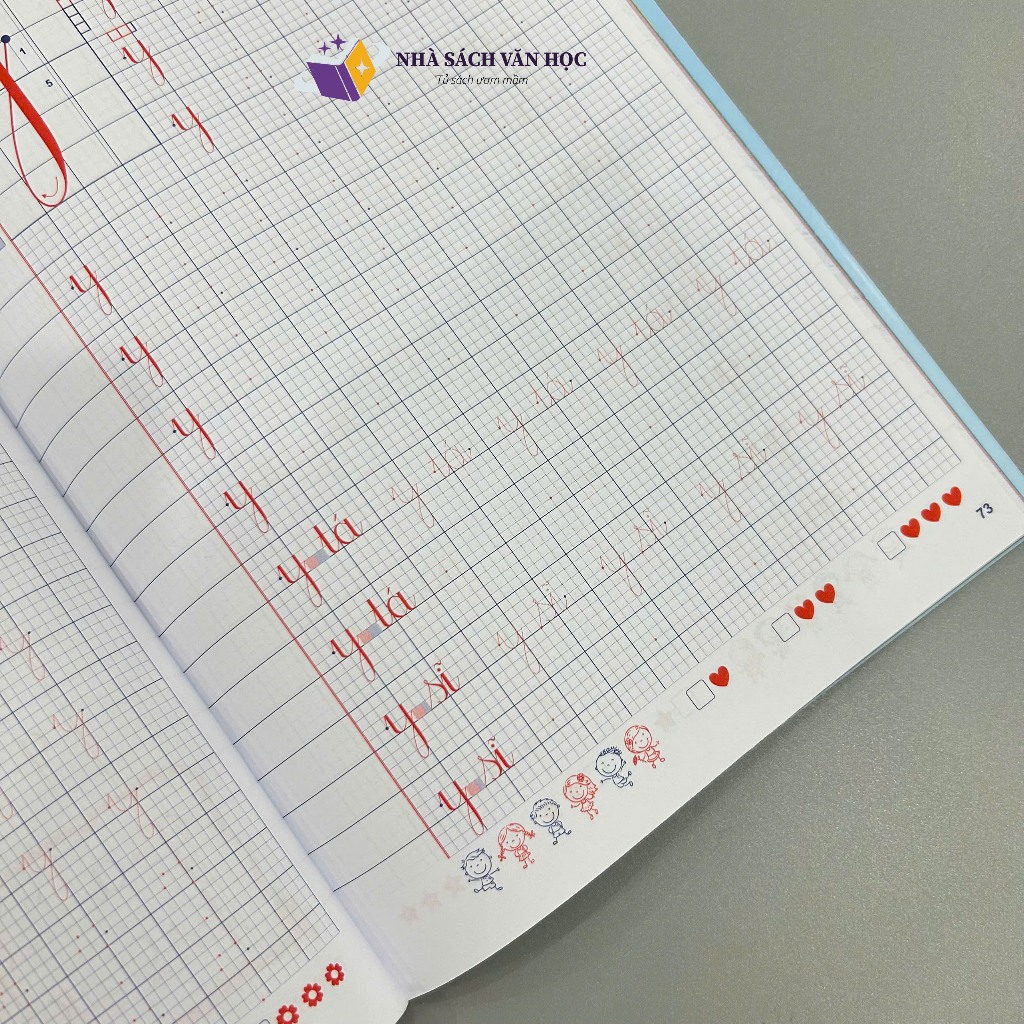 NHÀ SÁCH VĂN HỌC
Tủ sách ươm mầm
1
5
y
y
y
y
y
y
y tá y tá y tá y tá y tá
y tá
y sĩ y sĩ y sĩ y sĩ y sĩ
y sĩ
73